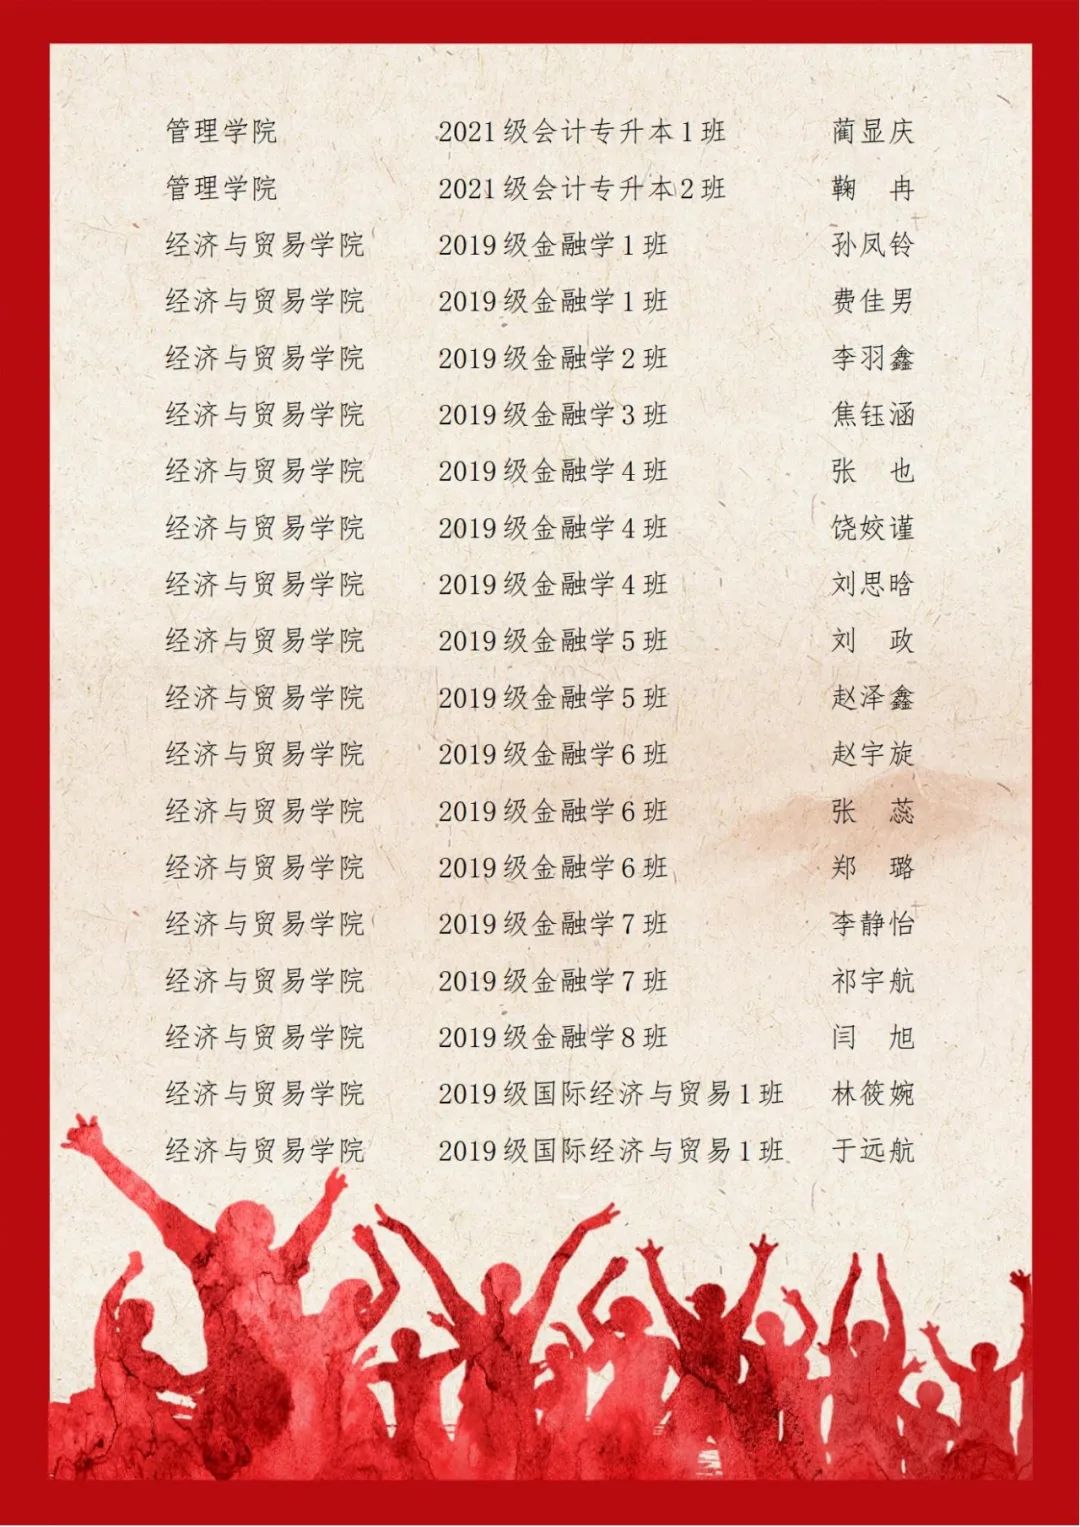 管理学院 2021级会计专升本1班 蔺显庆
管理学院 2021级会计专升本2班 鞠 冉
经济与贸易学院 2019级金融学1班 孙凤铃
经济与贸易学院 2019级金融学1班 费佳男
经济与贸易学院 2019级金融学2班 李羽鑫
经济与贸易学院 2019级金融学3班 焦钰涵
经济与贸易学院 2019级金融学4班 张 也
经济与贸易学院 2019级金融学4班 饶姣谨
经济与贸易学院 2019级金融学4班 刘思晗
经济与贸易学院 2019级金融学5班 刘 政
经济与贸易学院 2019级金融学5班 赵泽鑫
经济与贸易学院 2019级金融学6班 赵宇旋
经济与贸易学院 2019级金融学6班 张 蕊
经济与贸易学院 2019级金融学6班 郑 璐
经济与贸易学院 2019级金融学7班 李静怡
经济与贸易学院 2019级金融学7班 祁宇航
经济与贸易学院 2019级金融学8班 闫 旭
经济与贸易学院 2019级国际经济与贸易1班 林筱婉
经济与贸易学院 2019级国际经济与贸易1班 于远航